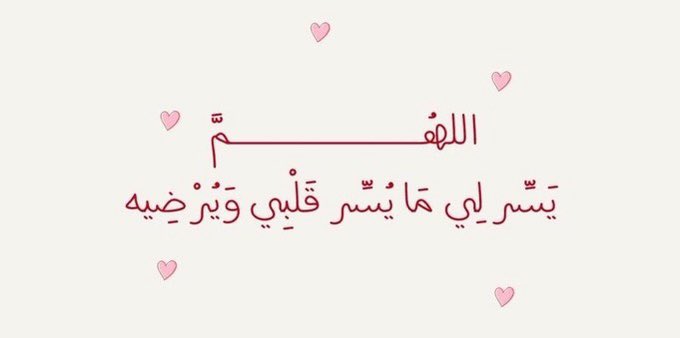 اللهُـــــــــــــــــمَّ
يَسِّر لِي مَا يُسِّر قَلْبِي وَيُرْضِيه